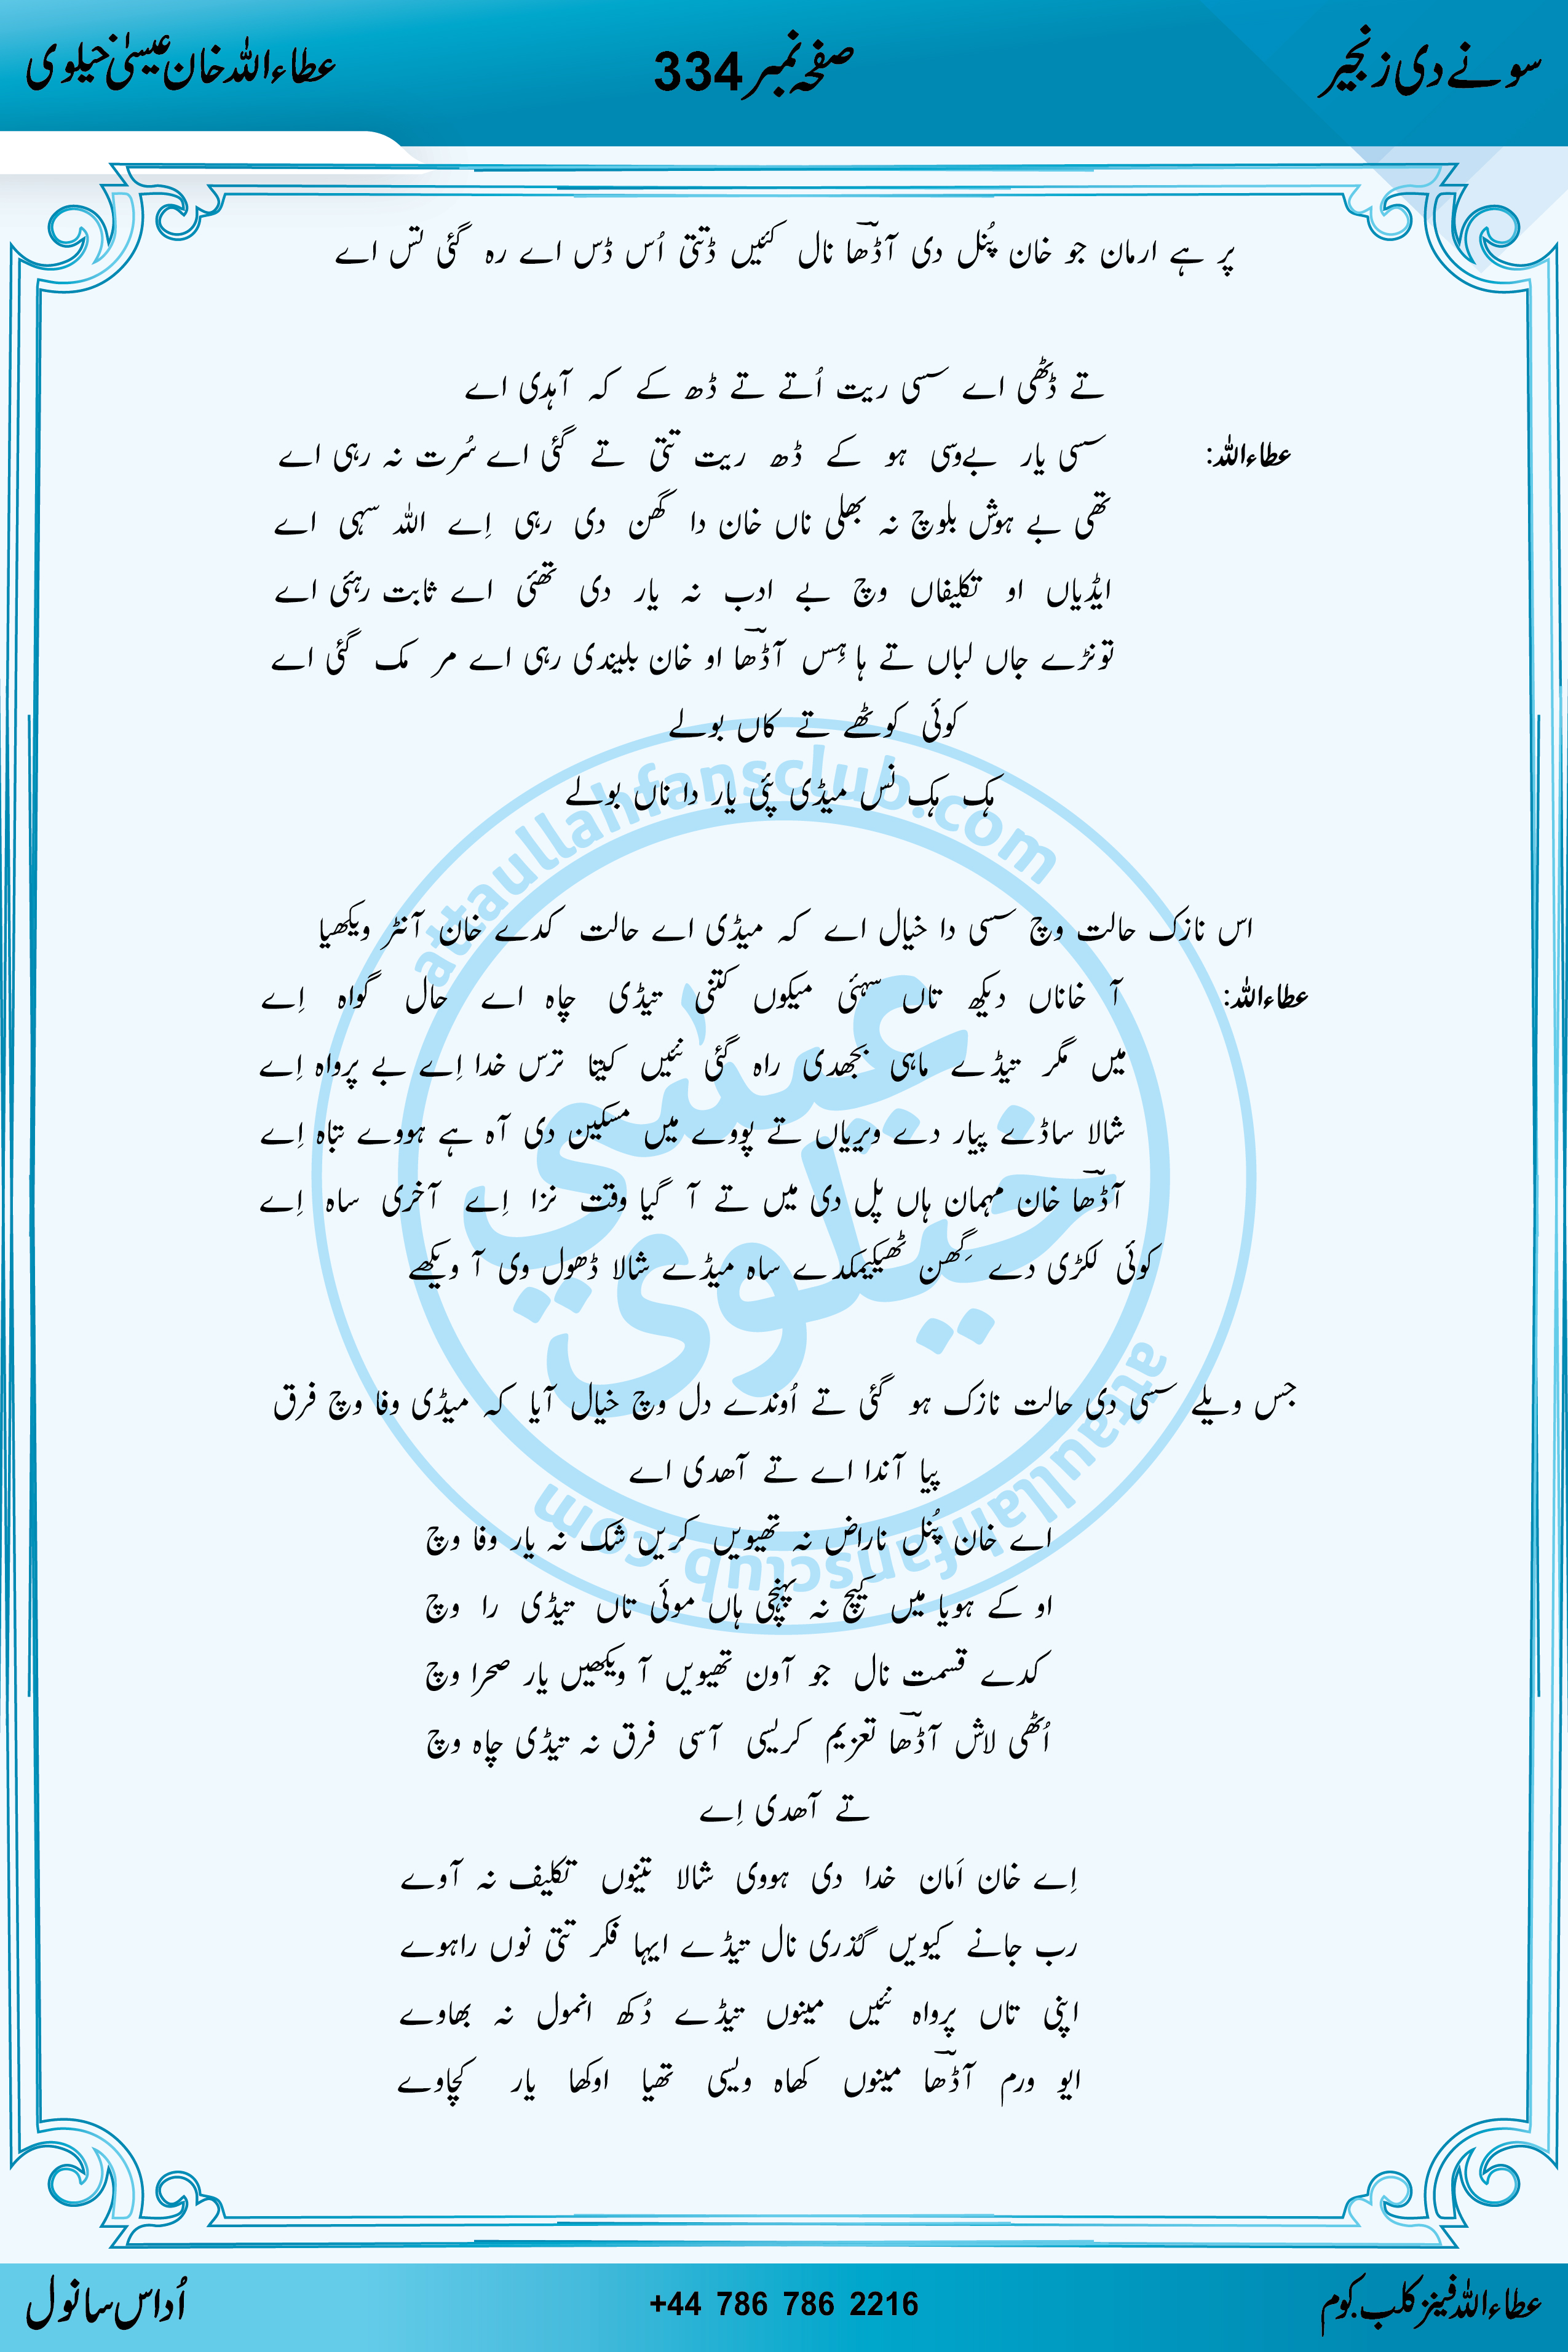 سونے دی زنجیر
صفحہ نمبر 334
عطاءاللہ خان عیسیٰ خیلوی
پر ہے ارمان جو خان پُنل دی آڈھاؔ نال کئیں ڈتتی اُس ڈس اے رہ گئی تس اے
تے ڈٹھی اے سسی ریت اُتے تے ڈھ کے کہ آہدی اے
عطاءاللہ: سسی یار بےوسی ہو کے ڈھ ریت تتی تے گئی اے سُرت نہ رہی اے
تھی بے ہوش بلوچ نہ بھلی ناں خان دا گھن دی رہی اِے اللہ سہی اے
ایڈیاں او تکلیفاں وچ بے ادب نہ یار دی تھئی اے ثابت رہئی اے
تونڑے جاں لباں تے ہا ہِس آڈھاؔ او خان بلیندی رہی اے مر مک گئی اے
کوئی کوٹھے تے کاں بولے
ہک ہک نس میڈی پئی یار دا ناں بولے
اس نازک حالت وچ سسی دا خیال اے کہ میڈی اے حالت کدے خان آنٹر ویکھیا
عطاءاللہ: آ خاناں دیکھ تاں سہئی میکوں کتنی تیڈی چاہ اے حال گواہ اِے
میں مگر تیڈے ماہی بجھدی راہ گئی نئیں کیتا ترس خدا اِے بے پرواہ اِے
شالا ساڈے پیار دے ویریاں تے پووے میں مسکین دی آہ ہے ہووے تباہ اِے
آڈھاؔ خان مہمان ہاں پل دی میں تے آ گیا وقت نزا اِے آخری ساہ اِے
کوئی لکڑی دے گِھن ٹھیکیمکدے ساہ میڈے شالا ڈھول وی آ ویکھے
جس ویلے سسی دی حالت نازک ہو گئی تے اُوندے دل وچ خیال آیا کہ میڈی وفا وچ فرق
پیا آندا اے تے آھدی اے
اے خان پُنل ناراض نہ تھیویں کریں شک نہ یار وفا وچ
او کے ہویا میں کیچ نہ پہنچی ہاں موئی تاں تیڈی را وچ
کدے قسمت نال جو آون تھیویں آ ویکھیں یار صحرا وچ
اُٹھی لاش آڈھاؔ تعزیم کریسی آسی فرق نہ تیڈی چاہ وچ
تے آھدی اِے
اِے خان اَمان خدا دی ہووی شالا تینوں تکلیف نہ آوے
رب جانے کیویں گذری نال تیڈے ایہا فکر تتی نوں راہوے
اپنی تاں پرواہ نئیں مینوں تیڈے دُکھ انمول نہ بھاوے
ایو ورم آڈھاؔ مینوں کھاہ ویسی تھیا اوکھا یار کچاوے
attaullahfansclub.com
عیسیٰ خیلوی
attaullahfansclub.com
عطاءاللہ فینز کلب.کوم
+44 786 786 2216
اُداس سانول